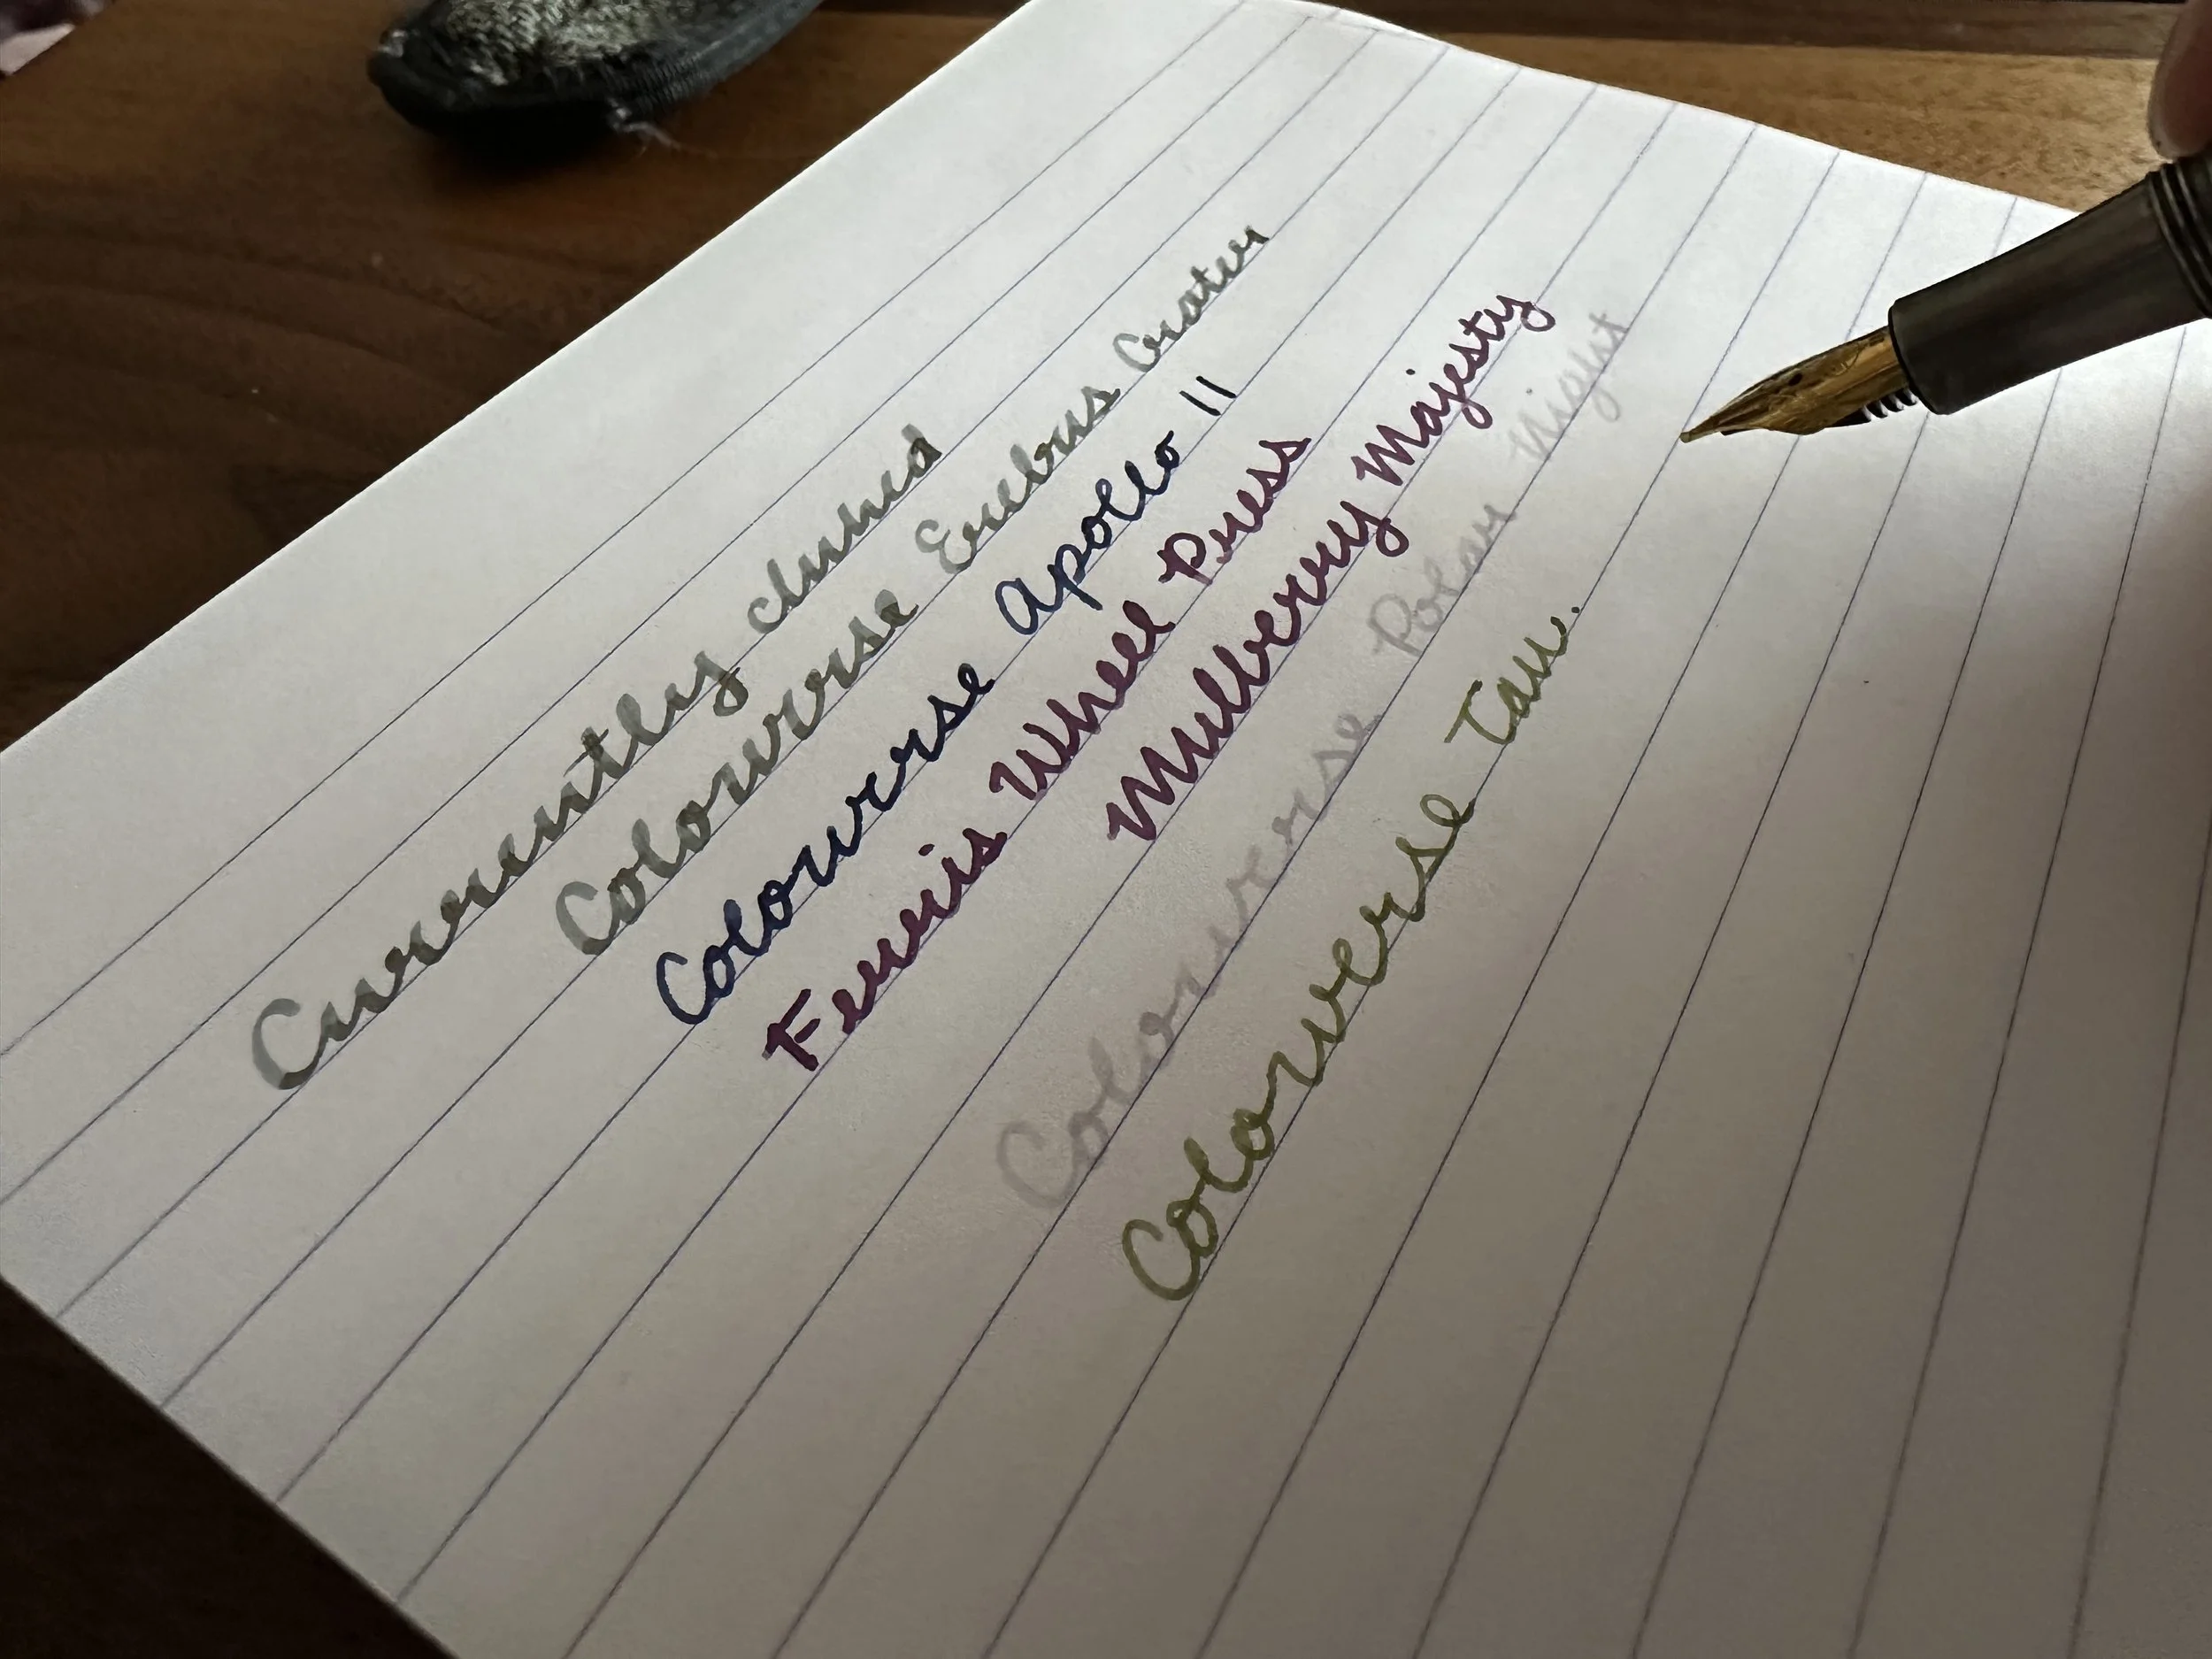 Currently inked
Colorverse Erebus Crater
Colorverse Apollo 11
Ferris Wheel Press
Mulberry Majesty
Colorverse Polar Night
Colorverse Tau.